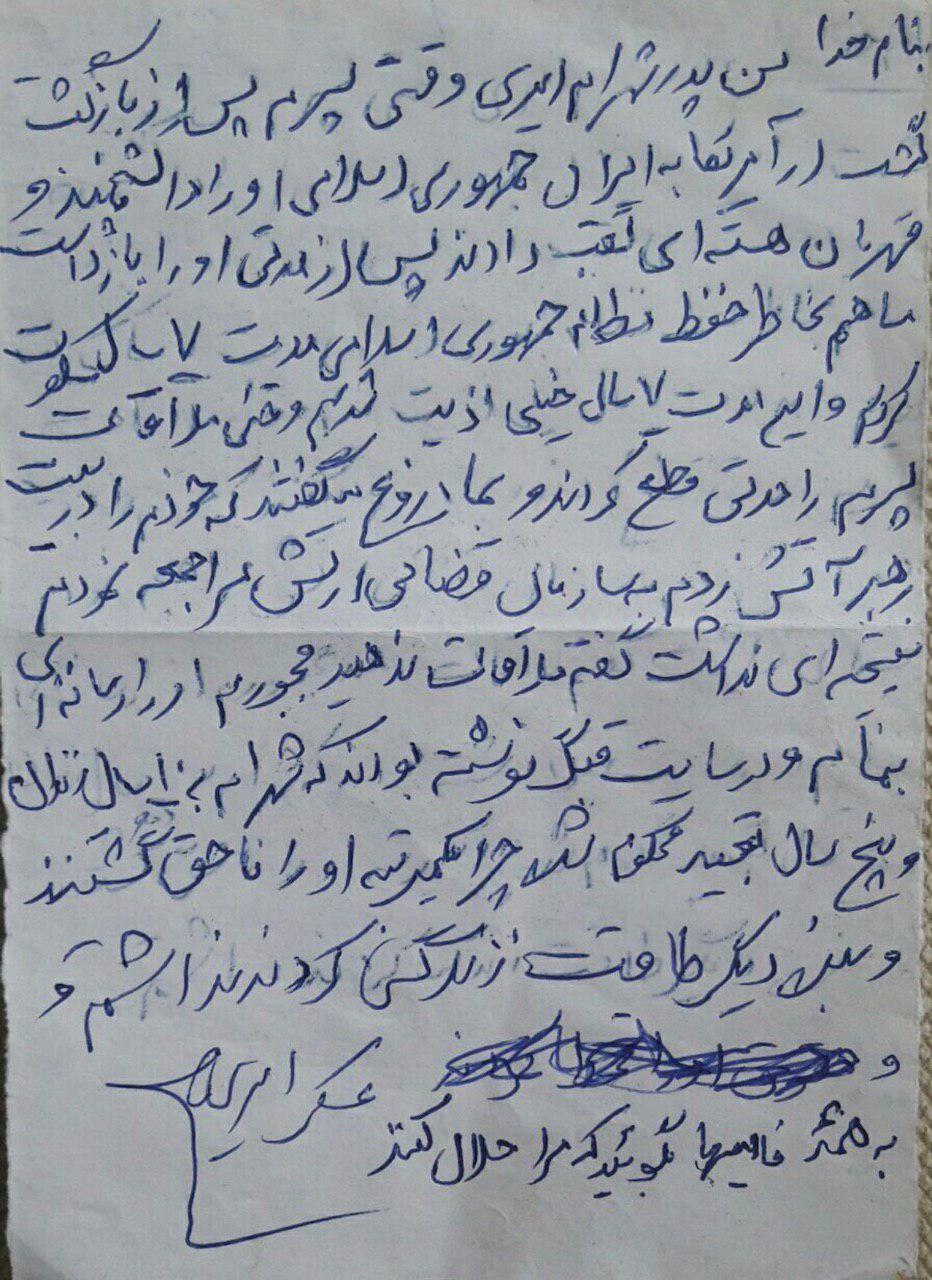 بنام خدا من پدر شهرام امیری وقتی پسرم پس از بازگشت
گشت از آمریکا به ایران جمهوری اسلامی او را دانشمند و
قهرمان هسته ای لقب دادند پس از مدتی او را بازداشت
ما هم بخاطر حفظ نظام جمهوری اسلامی مدت ۷ سال سکوت
کردیم و این مدت ۷ سال خیلی اذیت شدیم وقتی ملاقات
پسرم را مدتی قطع کردند و بما دروغ میگفتند که خودم را در بیت
رهبر آتش زدم به سازمان قضائی ارتش مراجعه نمودم
نتیجه ای نداشت گفتم ملاقات ندهید مجبورم او را رسانه ای
بنمایم و در سایت قبل نوشته بودند که شهرام به ۱۰ سال زندان
و پنج سال تبعید محکوم شد چرا یکمرتبه او را ناحق کشتند
و من دیگر طاقت زندگی کردن نداشتم و
و
عسگر امیری
به همه فامیلها بگوئید که مرا حلال کنند